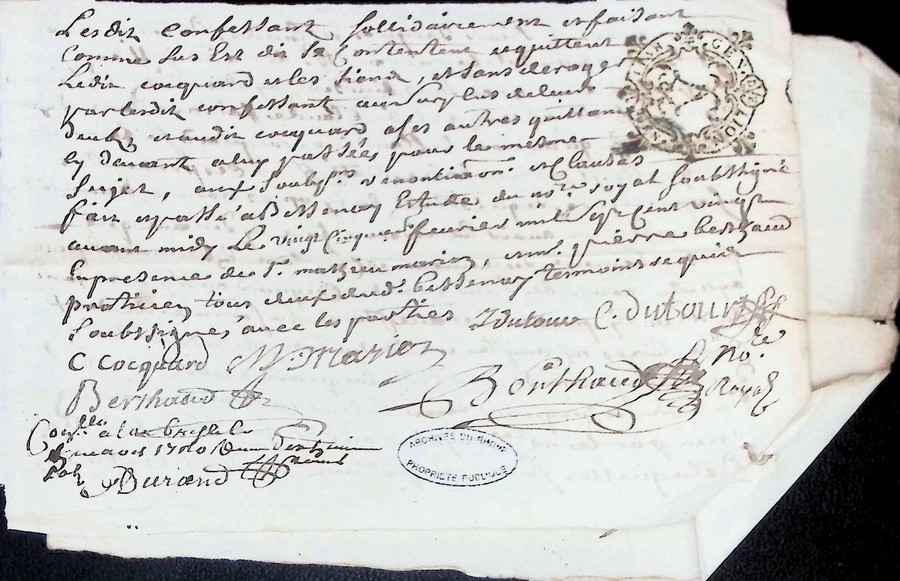 Lesdit confessant sollidairement et faisant
Comme sus Est dit se Contentent et quittent
Ledit cocquard et les siens, et sans deroger
par lesdit confessant au surplus de leurs
deub, et audit cocquard a ses autres quittances
cy devant a luy passées pour le mesme
sujet, aux soubs^ns renontiaon^s et Clauses
fait et passé a Bessenay Estude du no^re royal soubsigné
avant midy Le vingt cinquie^me feurier mil sept cent vingt
En presence de s^r mathieu marion, et m^e pierre berthaud
praticien tous deux dud^t bessenay temoins requis
soubsignés avec les parties Dutour C. Dutour
C Cocquard M Marion
Berthaud Berthaud No^re Royal
Con^lle a la
mars 1720
Par Durand
GE LYON
ARCHIVES DU RHONE
PROPRIETE PUBLIQUE